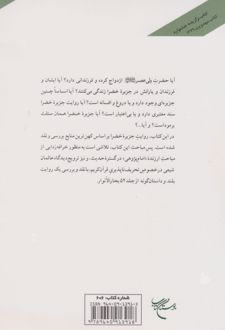 آیا حضرت ولی عصر ازدواج کرده و فرزندانی دارد؟ آیا ایشان و
فرزندان و یارانش در جزیرهٔ خضرا زندگی می‌کنند؟ آیا اساساً چنین
جزیره‌ای وجود دارد و یا دروغ و افسانه است؟ آیا روایت جزیرهٔ خضرا
سند معتبری دارد و یا بی‌اعتبار است؟ آیا جزیرهٔ خضرا همان مثلث
برموداست؟ و آیا...؟
در این کتاب، روایت جزیرهٔ خضرا بر اساس کهن‌ترین منابع بررسی و نقد
شده است. پس مباحث این کتاب، تلاشی به منظور خرافه‌زدایی از
مباحث ارزندهٔ «امام‌پژوهی»؛ در گسترهٔ حدیث، و نیز ترویج دیدگاه عالمان
شیعی در خصوص تحریف‌ناپذیری قرآن کریم، با نقد و بررسی یک روایت
بلند و داستان‌گونه از جلد ۵۲ بحارالأنوار.
شماره کتاب: